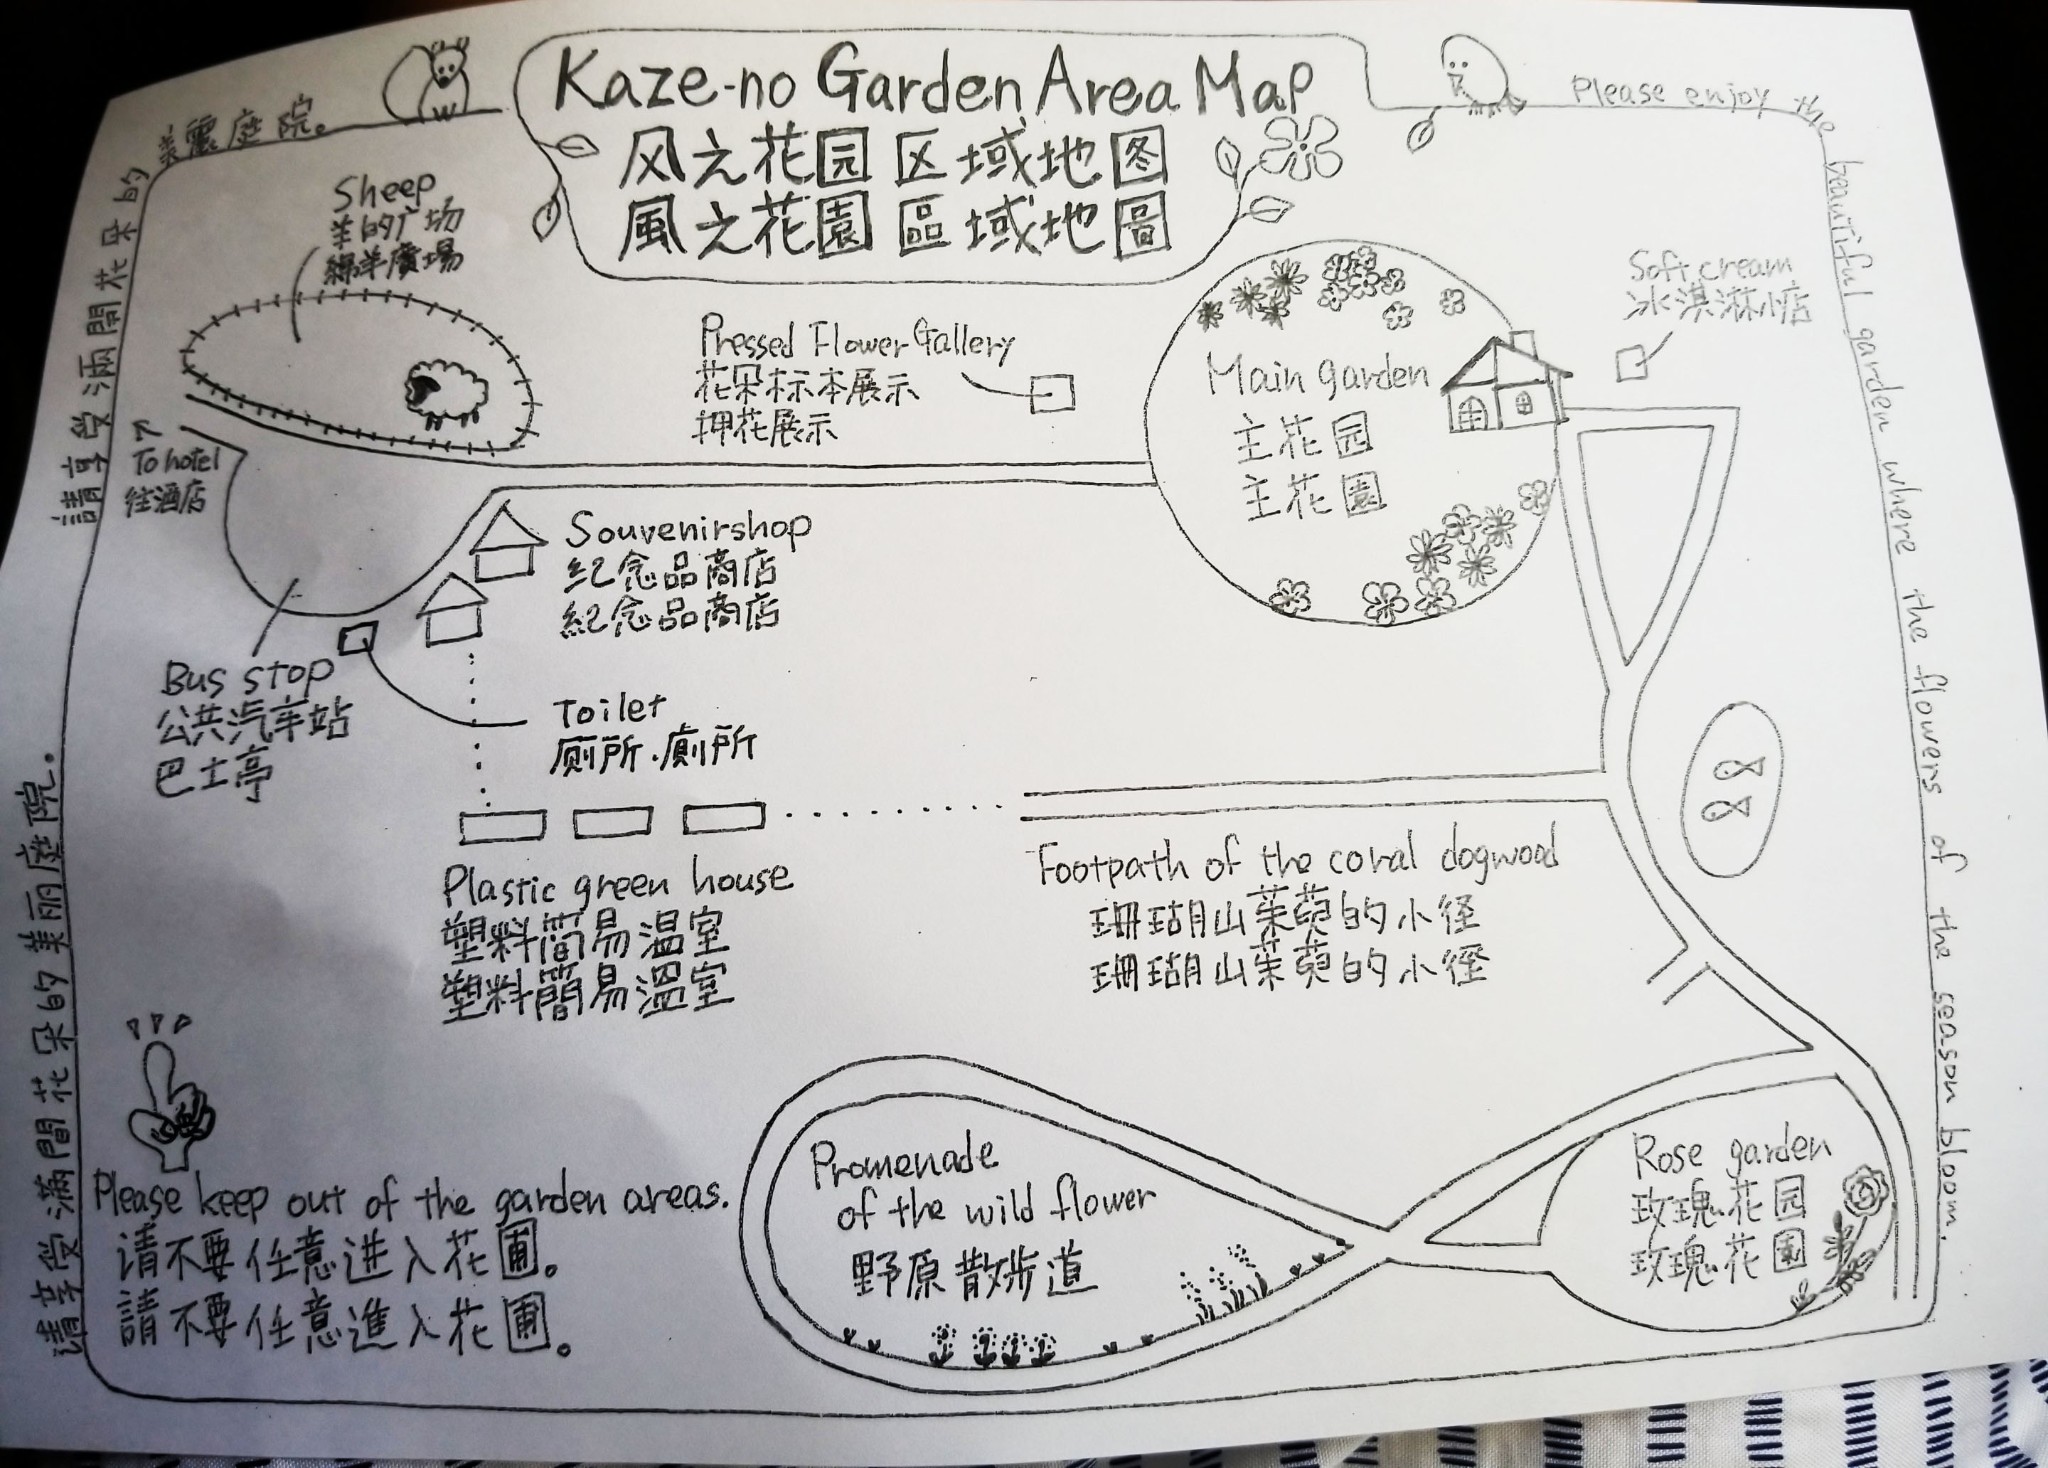 Kaze-no Garden Area Map
风之花园 区域地图
風之花園 區域地圖
Please enjoy the beautiful garden where the flowers of the season bloom.
請享受滿開花朵的美麗庭院。
请享受满開花朵的美丽庭院。
Sheep
羊的广场
綿羊廣場
To hotel
往酒店
Pressed Flower Gallery
花朵标本展示
押花展示
Main garden
主花园
主花園
Soft cream
冰淇淋小店
Souvenirshop
纪念品商店
紀念品商店
Bus stop
公共汽车站
巴士亭
Toilet
厕所.廁所
Plastic green house
塑料简易温室
塑料簡易溫室
Footpath of the coral dogwood
珊瑚山茱萸的小径
珊瑚山茱萸的小徑
Promenade
of the wild flower
野原散步道
Rose garden
玫瑰花园
玫瑰花園
Please keep out of the garden areas.
请不要任意进入花圃。
請不要任意進入花圃。